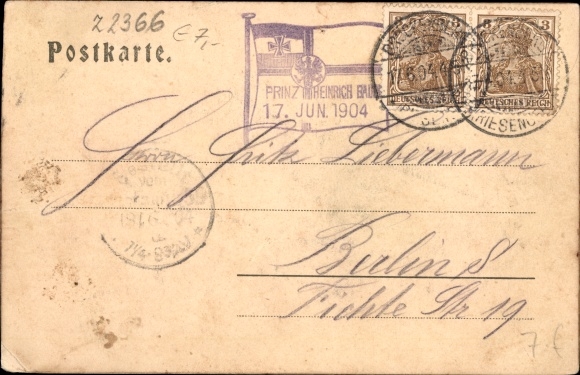 z 2366
€ 7,-
Postkarte.
PRINZ HEINRICH
17. JUN. 1904
3 3
DEUTSCHES REICH
DEUTSCHES REICH
Fritz Liebermann
Berlin S
Fichte Str 19
7.€